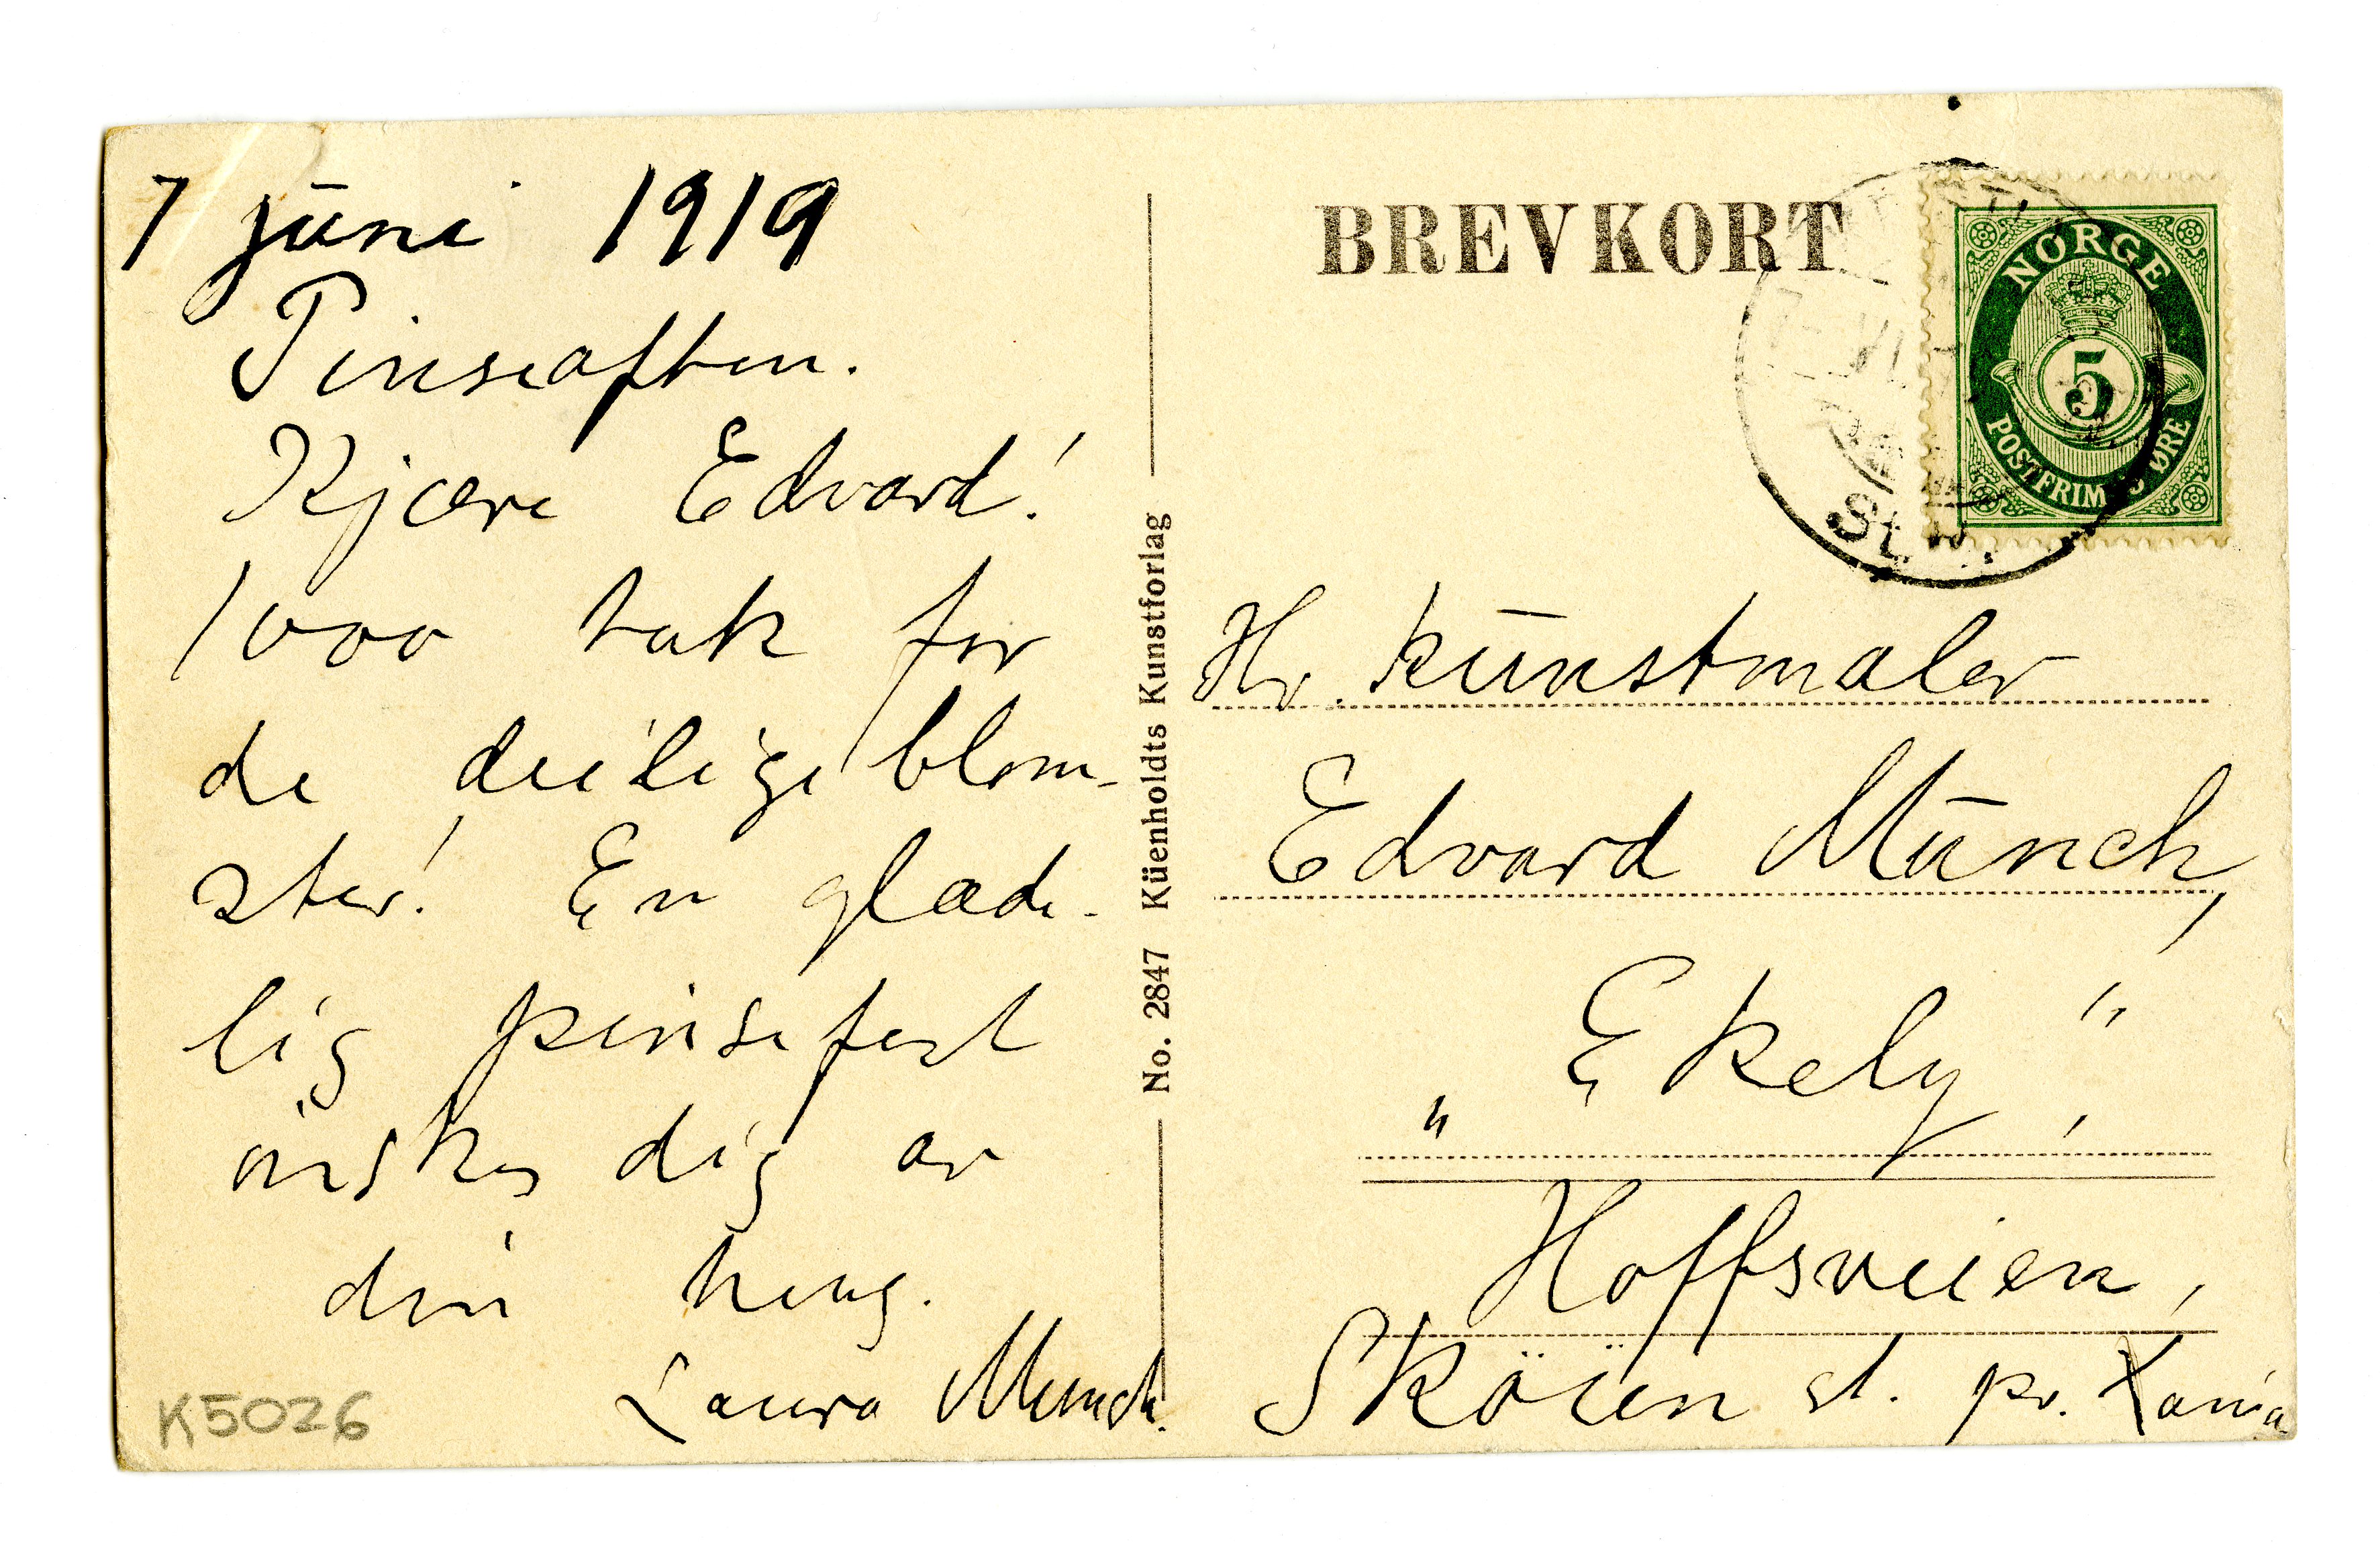 7 juni 1919
Pinseaften.
Kjære Edvard!
1000 tak for
de deilige blom-
ster! En glæde-
lig pinsefest
önskes dig av
din heng.
Laura Munch.
K5026
No. 2847 Küenholdts Kunstforlag
BREVKORT
NORGE
5
POSTFRIM 5 ØRE
Hr. Kunstmaler
Edvard Munch,
„Ekely",
Hoffsveien,
Sköien st. pr. Xania